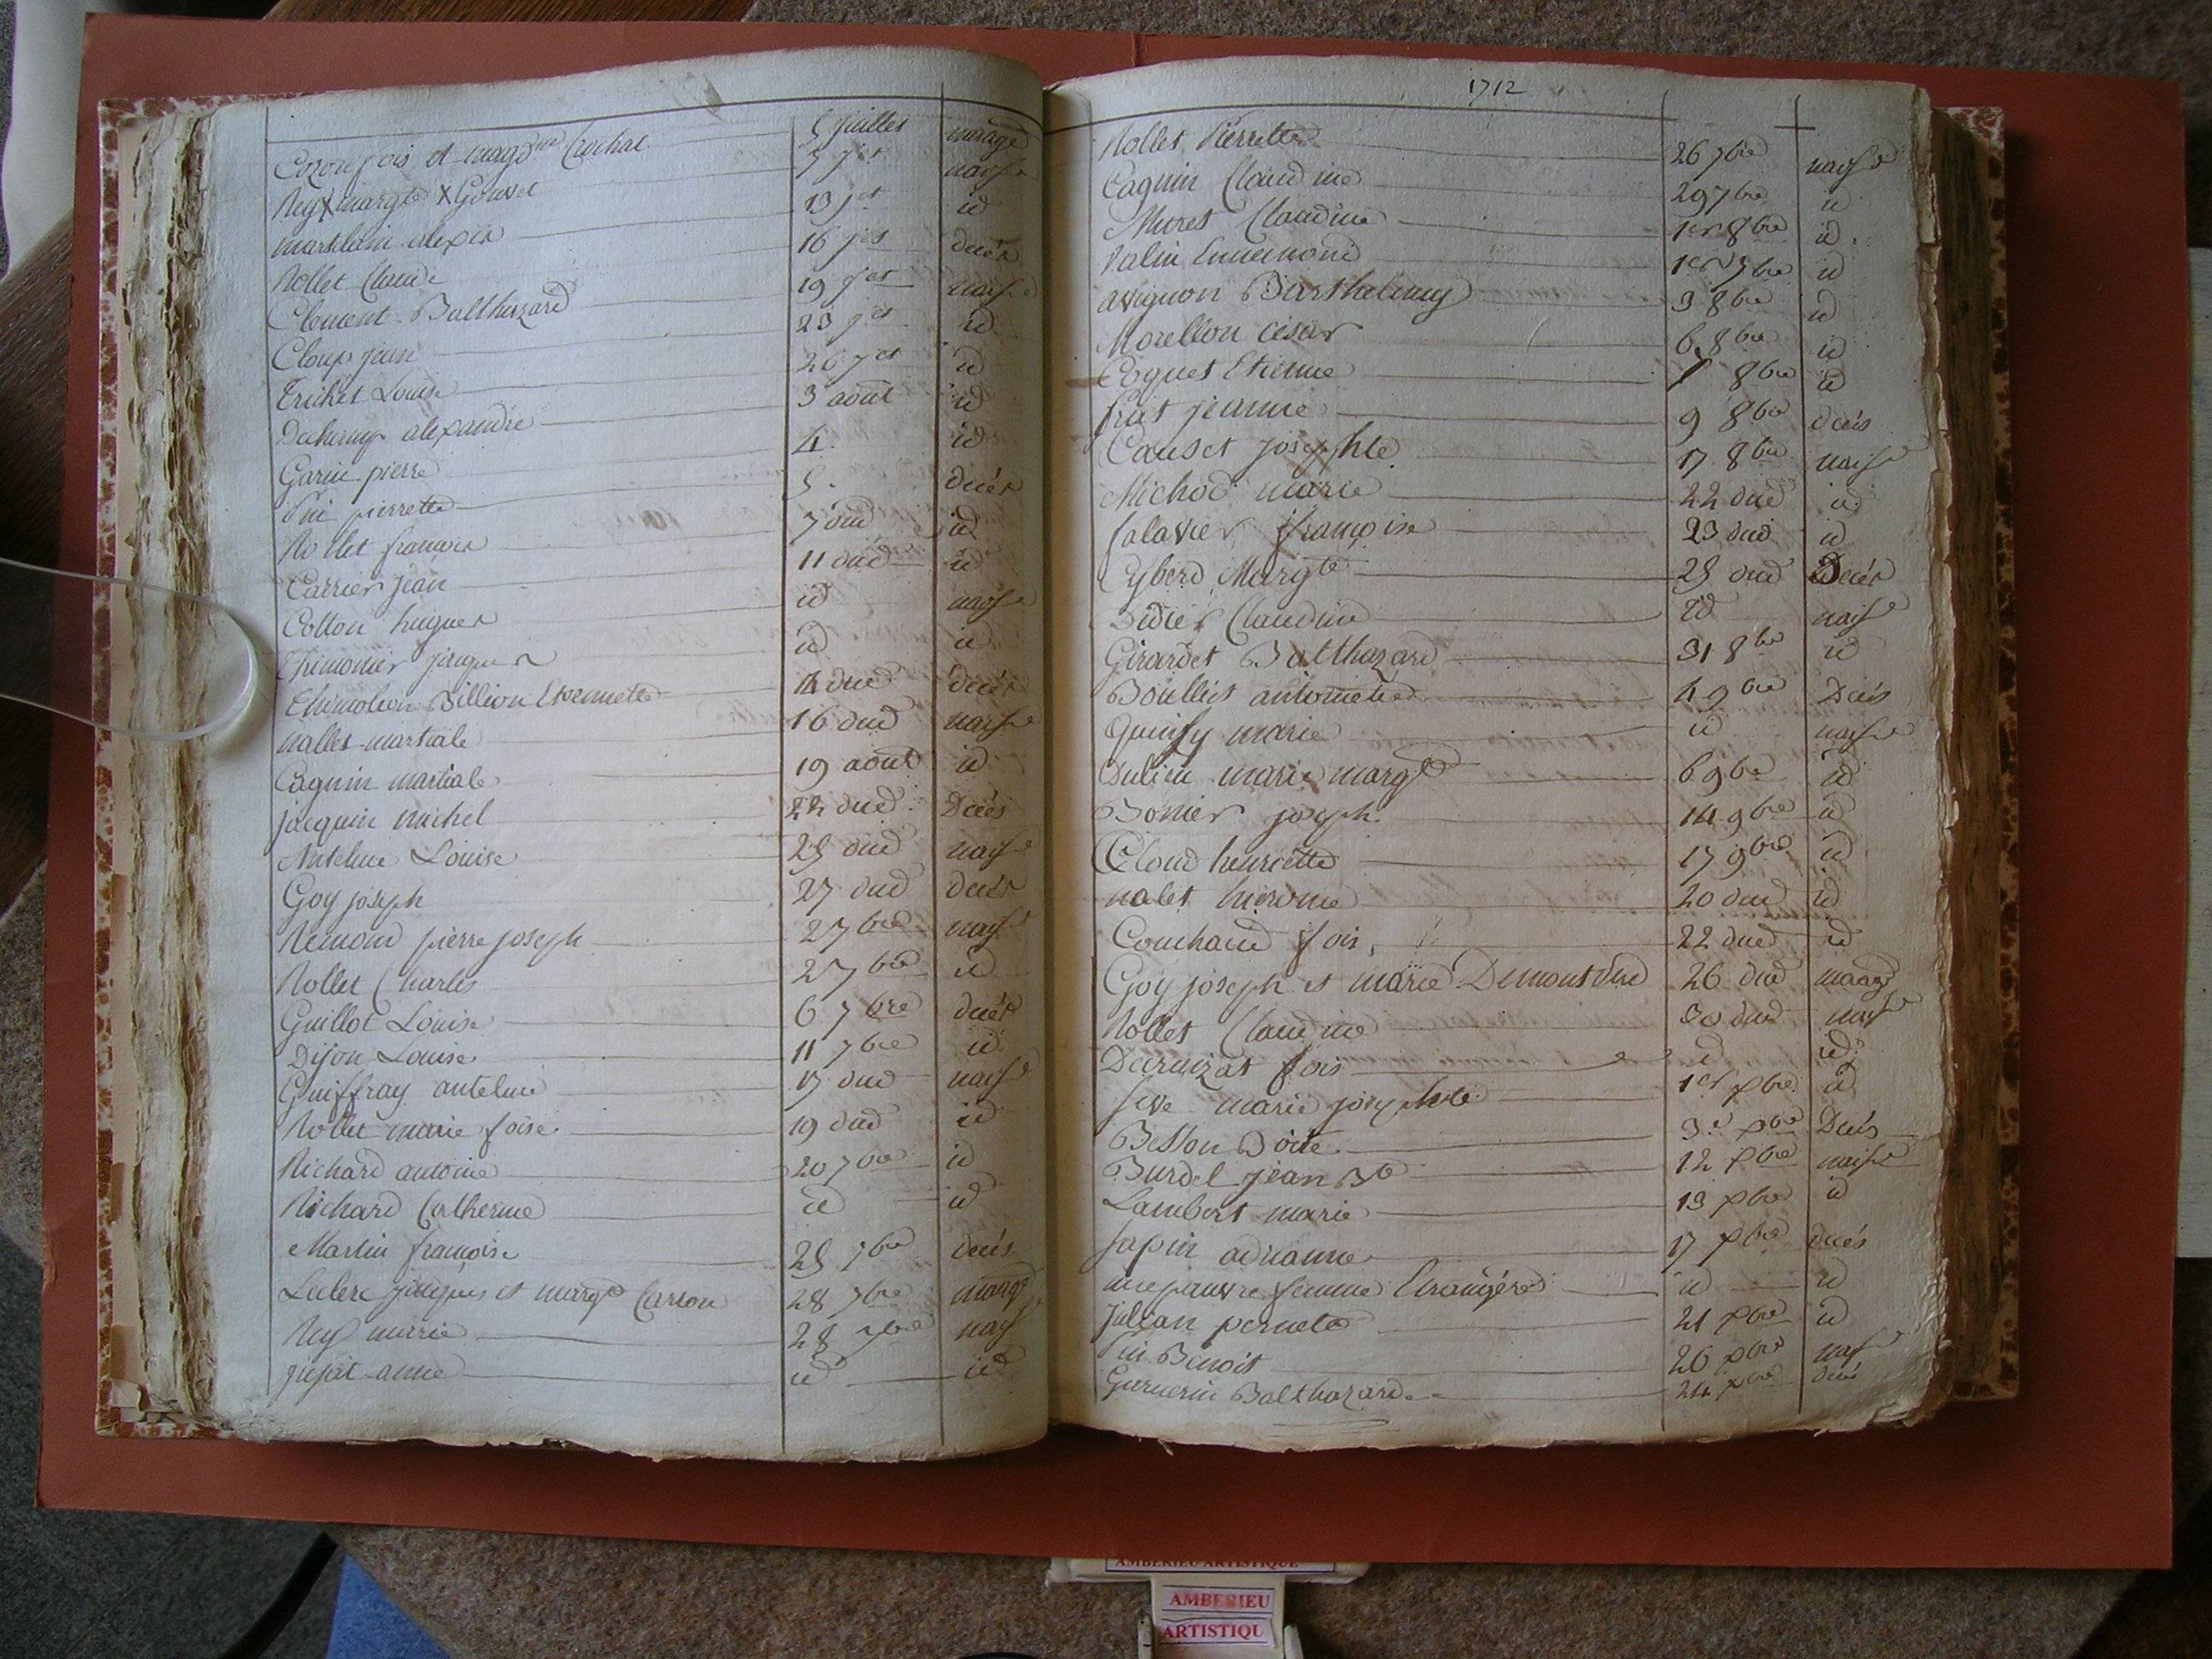 5 juillet mariage
Cozon fois et magdne Crochat
Rey margte X Gonvet 7 jet naisse
marslain alexis 13 jet id
Rollet Claude 16 jet décès
Clement Balthazard 19 jet naisse
Cloup jean 23 jet id
Trichet Louise 26 jet id
Duchamp alexandre 3 août id
Garin pierre 4 id
pierrette 5 décès
Rollet françois 7 dud id
Carrier jean 11 dud id
Cotton hugues id naisse
Thimonier jacques id id
Thimolion Billion Etiennete 14 dud décès
nallet martiale 16 dud naisse
Cagnin martiale 19 août id
jacquin michel 22 dud Décès
Antelme Louise 25 dud naisse
Goy joseph 27 dud decès
Remond pierre joseph 2 7bre naisse
Rollet Charles 2 7bre id
Guillot Louise 6 7bre décès
Dijon Louise 11 7bre id
Guiffray antelme 17 dud naisse
Rollet marie foise 19 dud id
Richard antoine 20 7bre id
Richard Catherine id id
Martin françoise 25 7bre decés
Leclerc jacques et margte Carron 28 7bre marage
marie 28 7bre naiss
jujat anne id id
1712
Rollet Pierrette 26 7bre naisse
Cagnin Claudine 29 7bre id
Muret Claudine 1er 8bre id
Valin Ennemond 1er 7bre id
avignon Barthelemy 3 8bre id
Morellon César 6 8bre id
Coquet Etienne 7 8bre id
jeanne 9 8bre décés
Causet josephte 17 8bre naisse
Michod marie 22 dud id
Salavier françoise 23 dud id
Eyberd Margte 25 dud Decés
Didier Claudine id naiss
Girardet Balthazard 31 8bre id
Boulliet antoinette 4 9bre Décés
Quinsy marie id naisse
Dulieu marie margte 6 9bre id
Bonier joseph 14 9bre id
Cloud henriette 17 9bre id
nalet hierome 20 dud id
Couchaud fois 22 dud id
Goy joseph et marie Demontdud 26 dud mariag
Rollet Claudine 30 dud naisse
Decruizat fois id id
Seve marie josephte 1er xbre id
Besson Boite 3e xbre Décés
Burdel jean Bte 12 xbre naisse
Lambert marie 13 xbre id
Sapin adrianne 17 xbre décés
une pauvre femme Etrangére id id
Jullan pernete 21 xbre id
Benoit 26 xbre naisse
Guruerin Balthazard 24 xbre décé
AMBERIEU ARTISTIQUE
AMBERIEU
ARTISTIQU